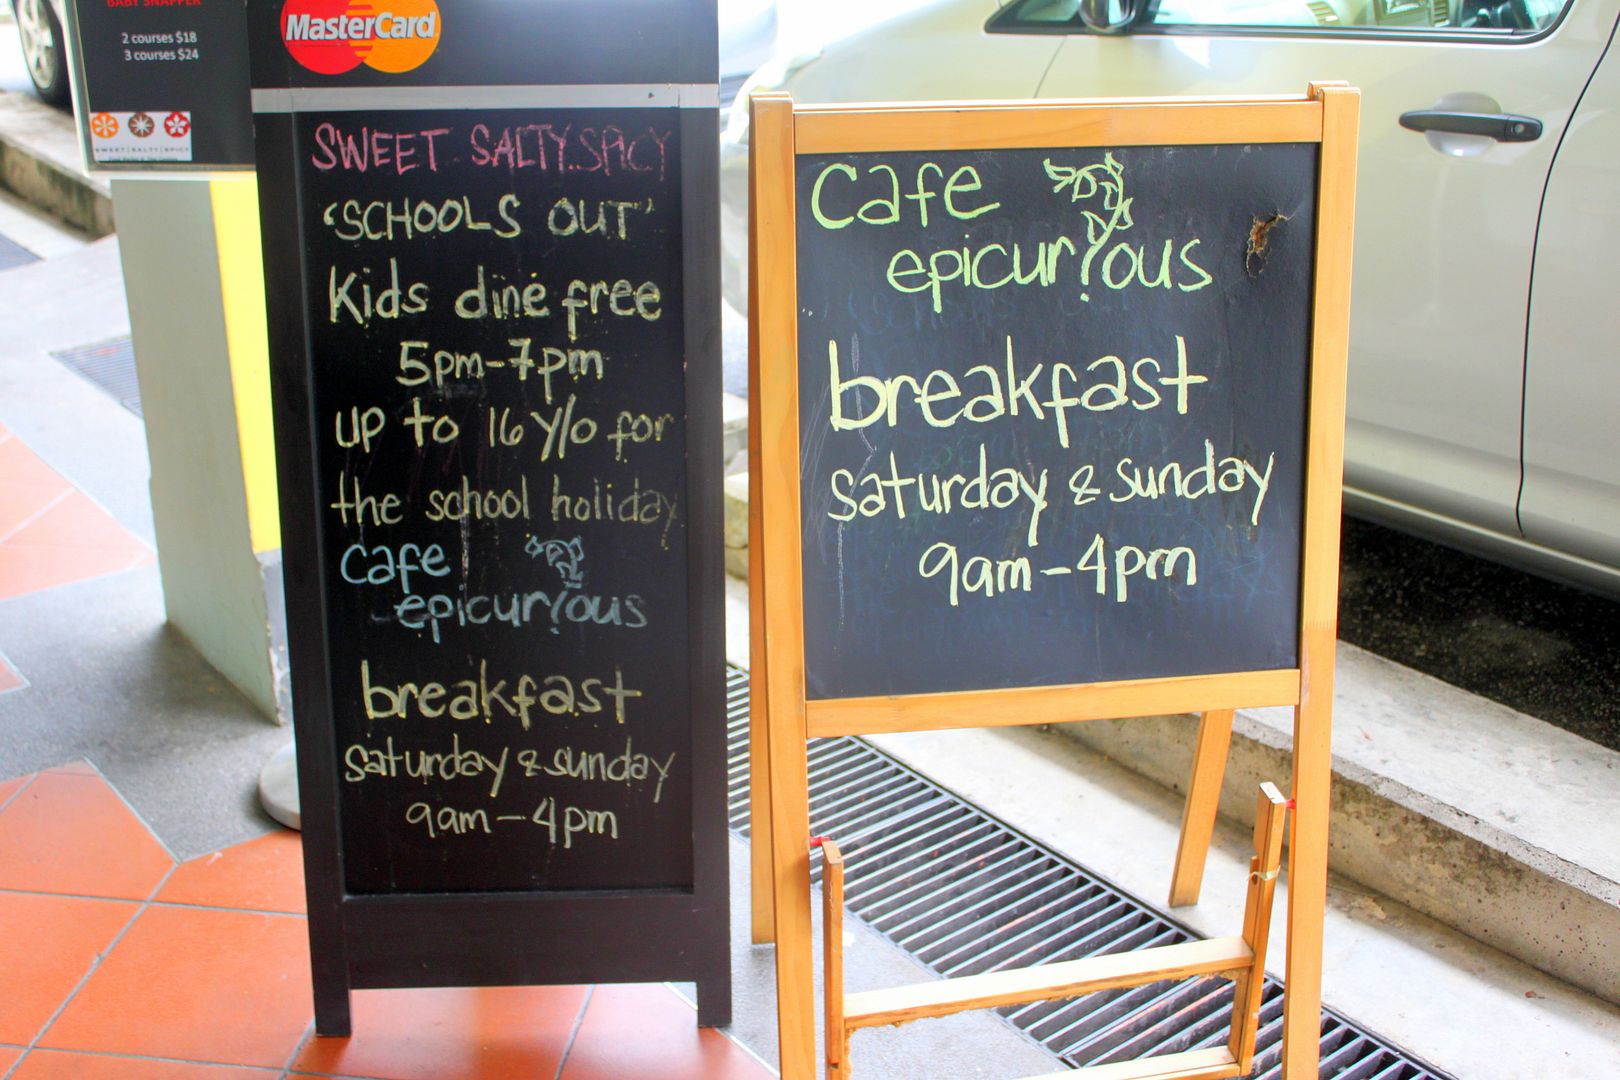 BABY SNAPPER
2 courses $18
3 courses $24
SWEET | SALTY | SPICY
MasterCard
SWEET SALTY.SPICY
'SCHOOLS OUT'
Kids dine free
5pm-7pm
up to 16 y/o for
the school holiday
cafe
epicurious
breakfast
saturday & sunday
9am-4pm
cafe
epicurious
breakfast
saturday & sunday
9am-4pm